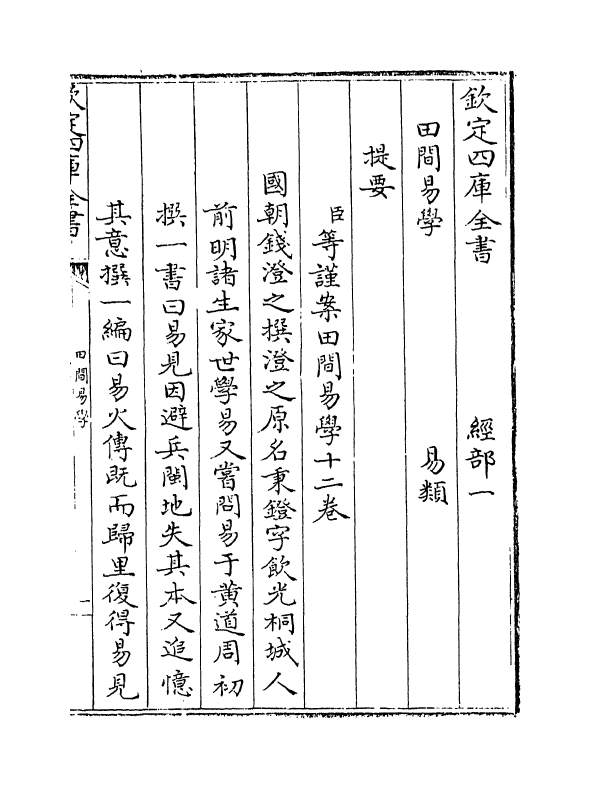 欽定四庫全書　經部一
田間易學　易類
提要
臣等謹案田間易學十二卷
國朝錢澄之撰澄之原名秉鐙字飲光桐城人
前明諸生家世學易又嘗問易于黃道周初
撰一書曰易見因避兵閩地失其本又追憶
其意撰一編曰易火傳既而歸里復得易見
欽定四庫全書
田間易學
一